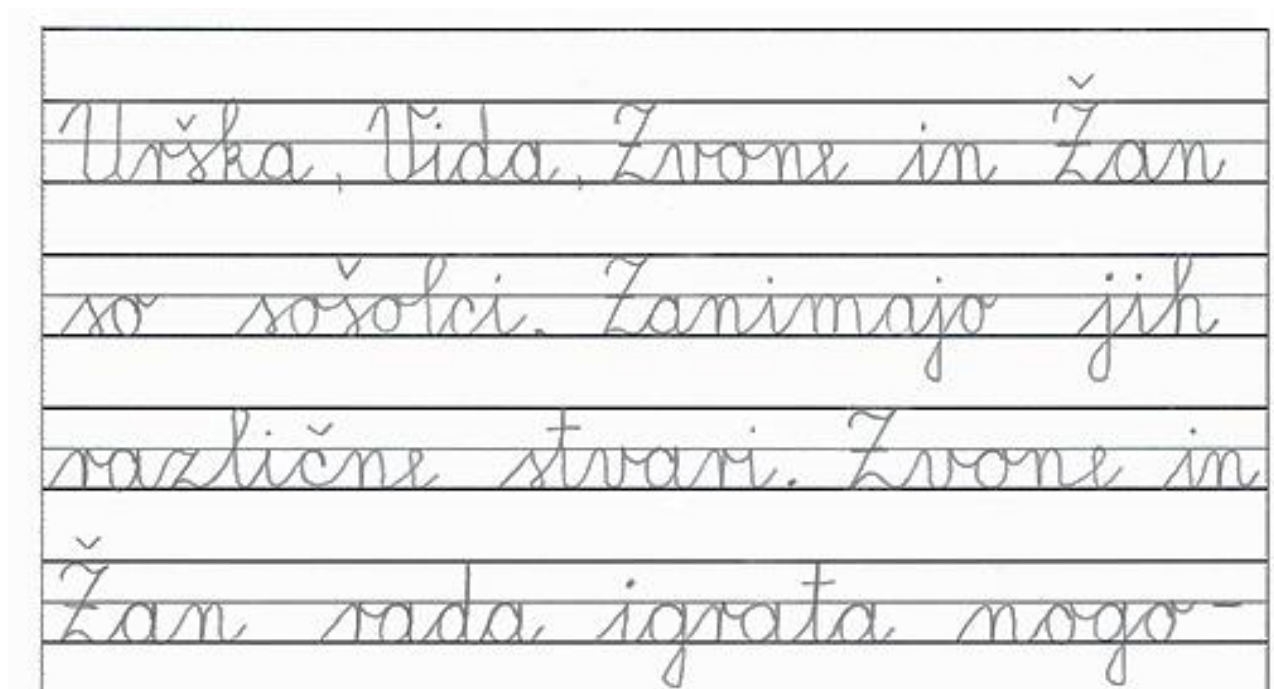 Urška, Vida, Zvone in Žan
so sošolci. Zanimajo jih
različne stvari. Zvone in
Žan rada igrata nogo-